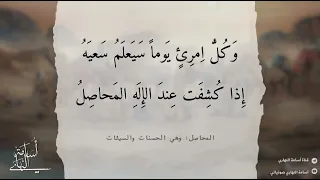 وَكُلُّ اِمرِئٍ يَوماً سَيَعلَمُ سَعيَهُ
إِذا كُشِفَت عِندَ الإِلَهِ المَحاصِلُ
المحاصل: وهي الحسنات والسيئات
أسامة
قناة أسامة النهاري
أسامة النهاري صوتياتي